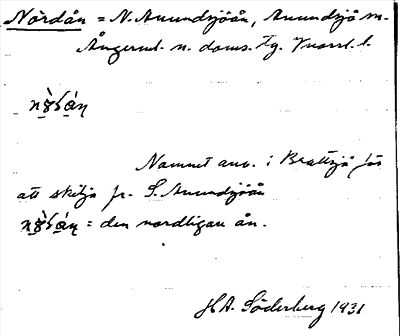 Nordån = N. Anundsjöån, Anundsjö sn.
Ångerml. n. doms. Tg. Vnorrl. l.
Namnet anv. i Brattsjö för
att skilja fr. S. Anundsjöån
= den nordligan ån.
H.A. Söderberg 1931